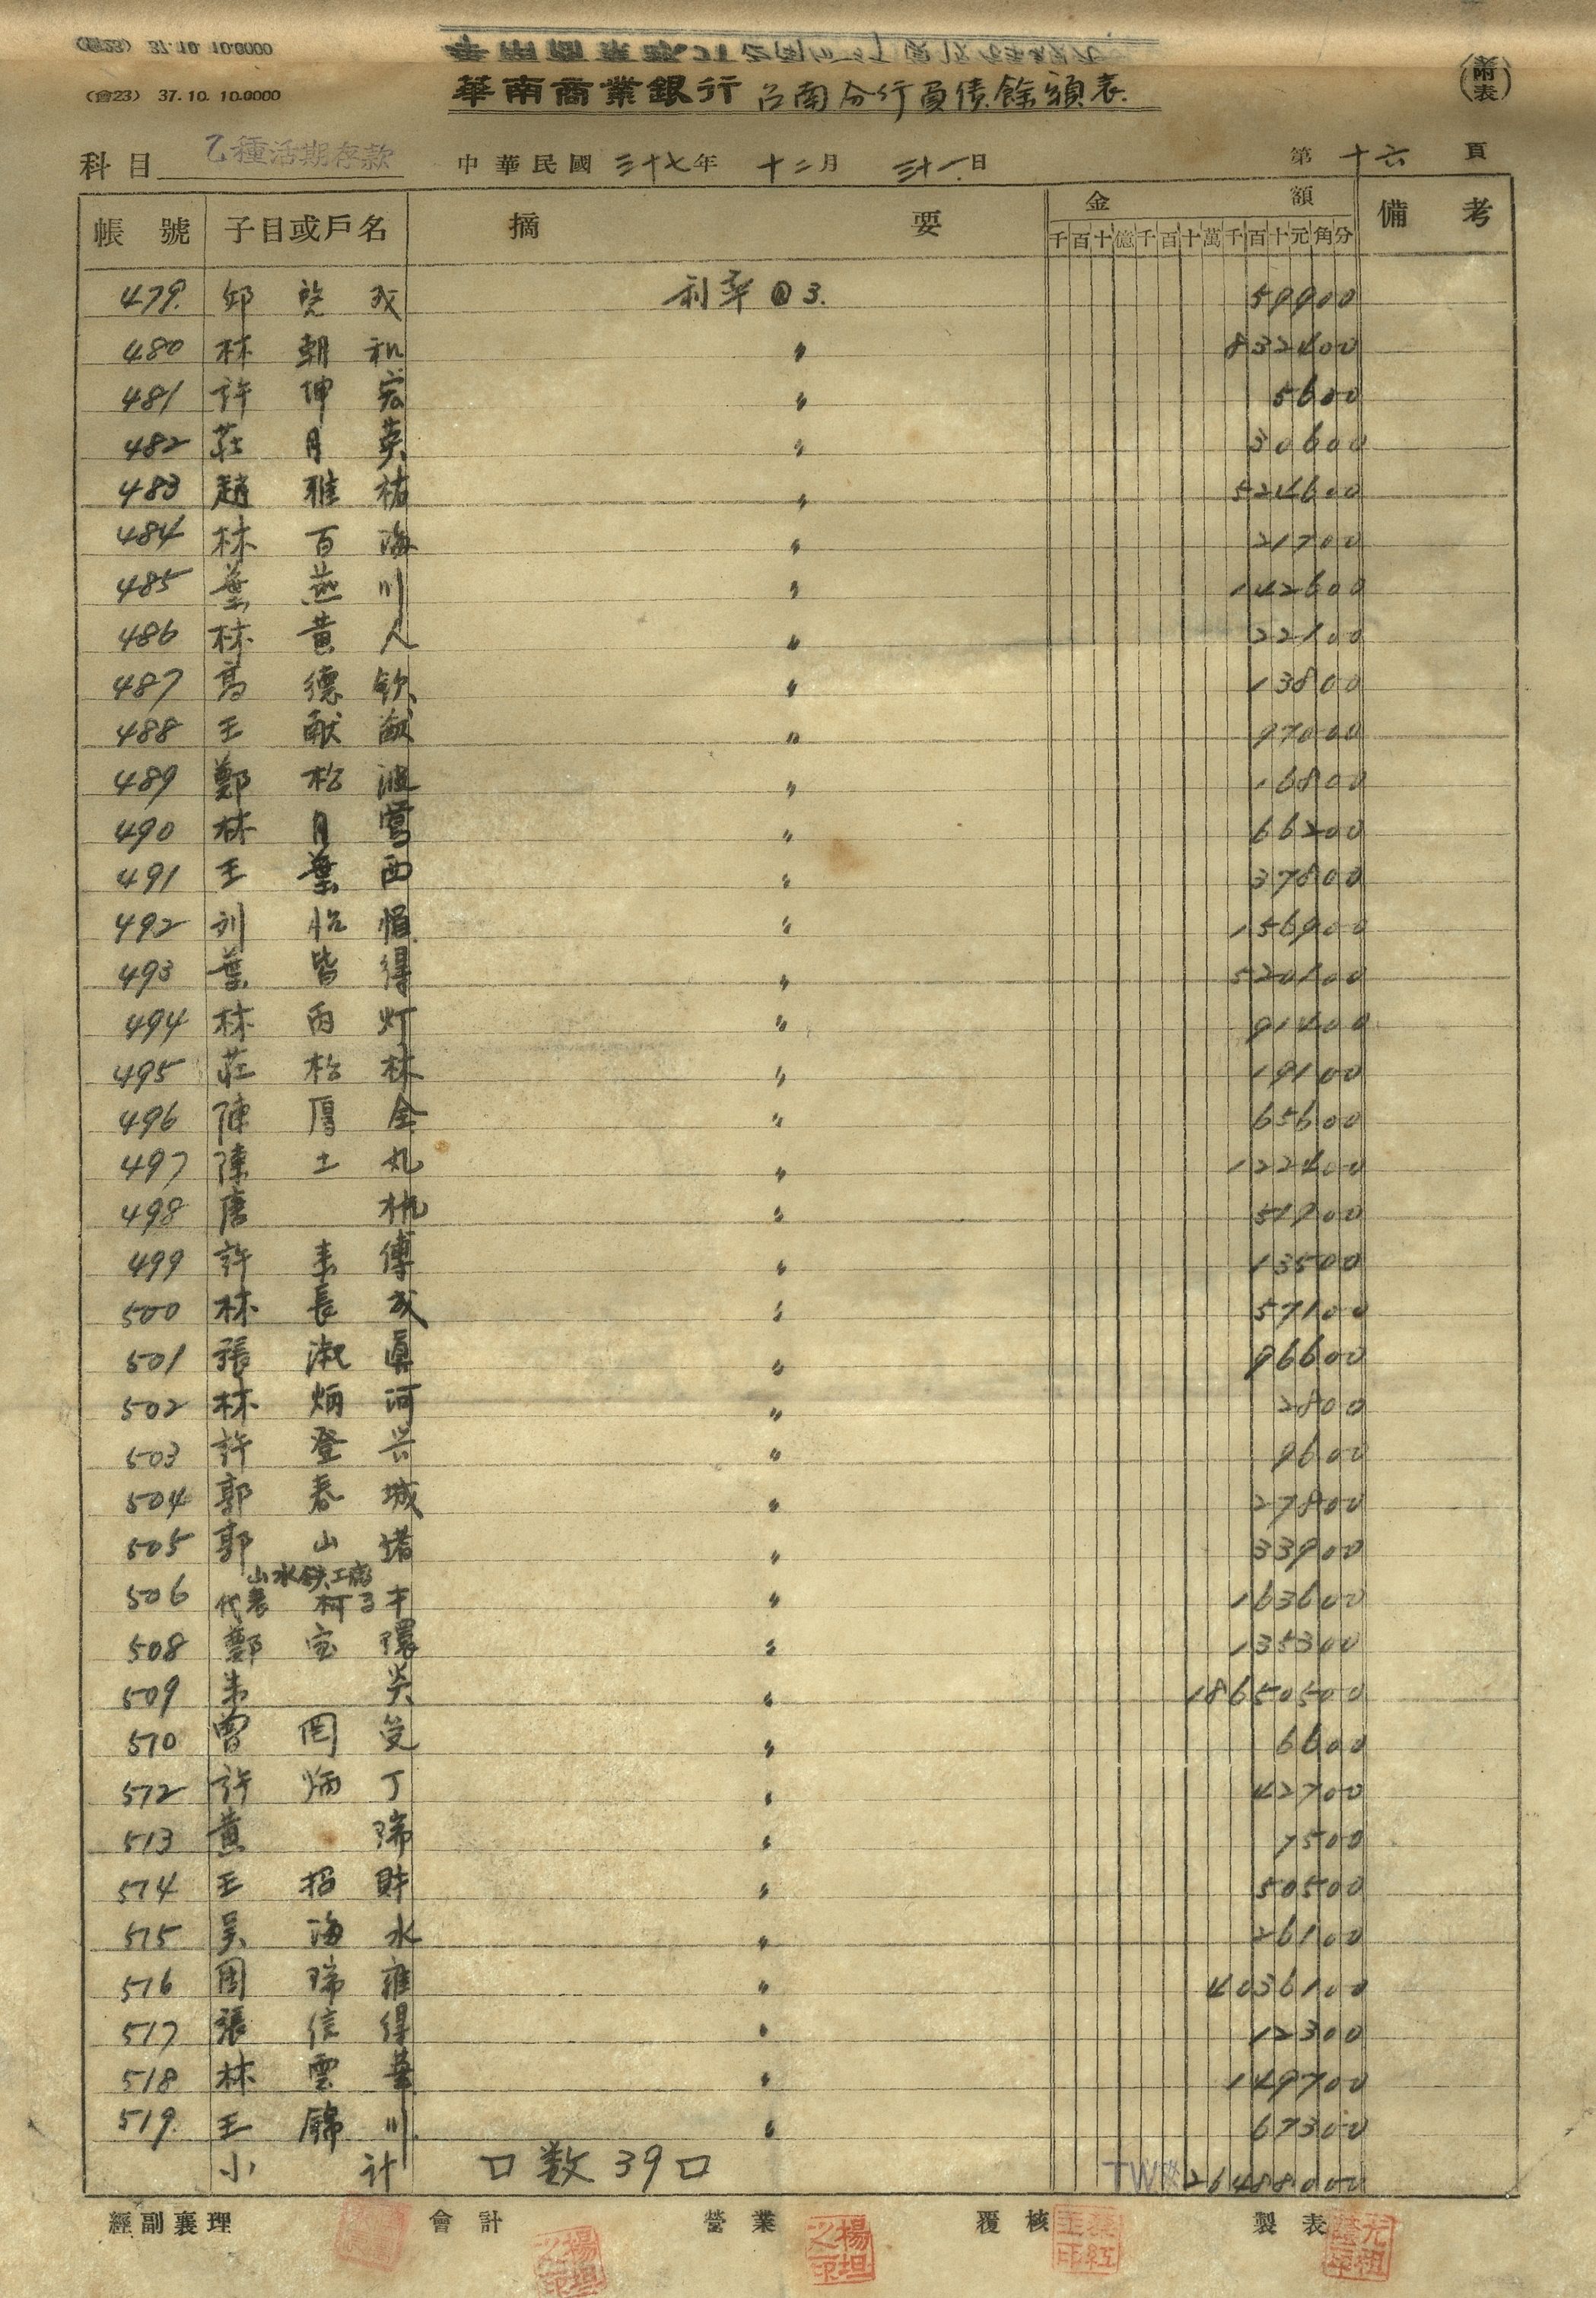 (會23) 37.10. 10.0000
(會23) 37.10. 10.0000
華南商業銀行 台南分行負債餘額表
(附表)
科目 乙種活期存款 中華民國三十七年 十二月 三十一日 第十六頁
帳號 子目或戶名 摘要 金額 備考
千百十億千百十萬千百十元角分
479. 邱 成 利率@3. 59900
480 林朝和 〃 832400
481 許伸宏 〃 5600
482 莊月英 〃 30600
483 趙雅祐 〃 524600
484 林百海 〃 21700
485 葉燕川 〃 142600
486 林黃人 〃 22100
487 高德欽 〃 13800
488 王献猷 〃 97000
489 鄭松波 〃 16800
490 林月鶯 〃 66200
491 王葉西 〃 37800
492 刘 〃 156900
493 葉皆得 〃 520100
494 林丙灯 〃 91400
495 莊松林 〃 19100
496 陳厚全 〃 65600
497 陳土丸 〃 122400
498 唐 〃 51900
499 許 傳 〃 13500
500 林長成 〃 57100
501 張淑真 〃 96600
502 林炳河 〃 2800
503 許登兴 〃 9600
504 郭春城 〃 27800
505 郭山 〃 33900
506 山水鉄工廠
代表 柯 〃 163600
508 鄭宝環 〃 135300
509 朱 〃 18650500
510 曾罔受 〃 6600
512 許炳丁 〃 42700
513 黃瑞 〃 7500
514 王招財 〃 50500
515 吳海水 〃 26100
516 周瑞雍 〃 4036100
517 張信得 〃 12300
518 林雲華 〃 149700
519. 王錦川 〃 67300
小計 口数39口 26488000
經副襄理 會計 營業 覆核 製表
楊坦之印
楊坦之印